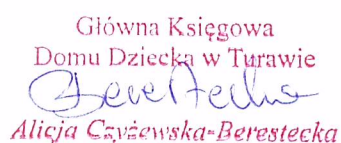 Główna Księgowa
Domu Dziecka w Turawie
Alicja Czyżewska-Berestecka